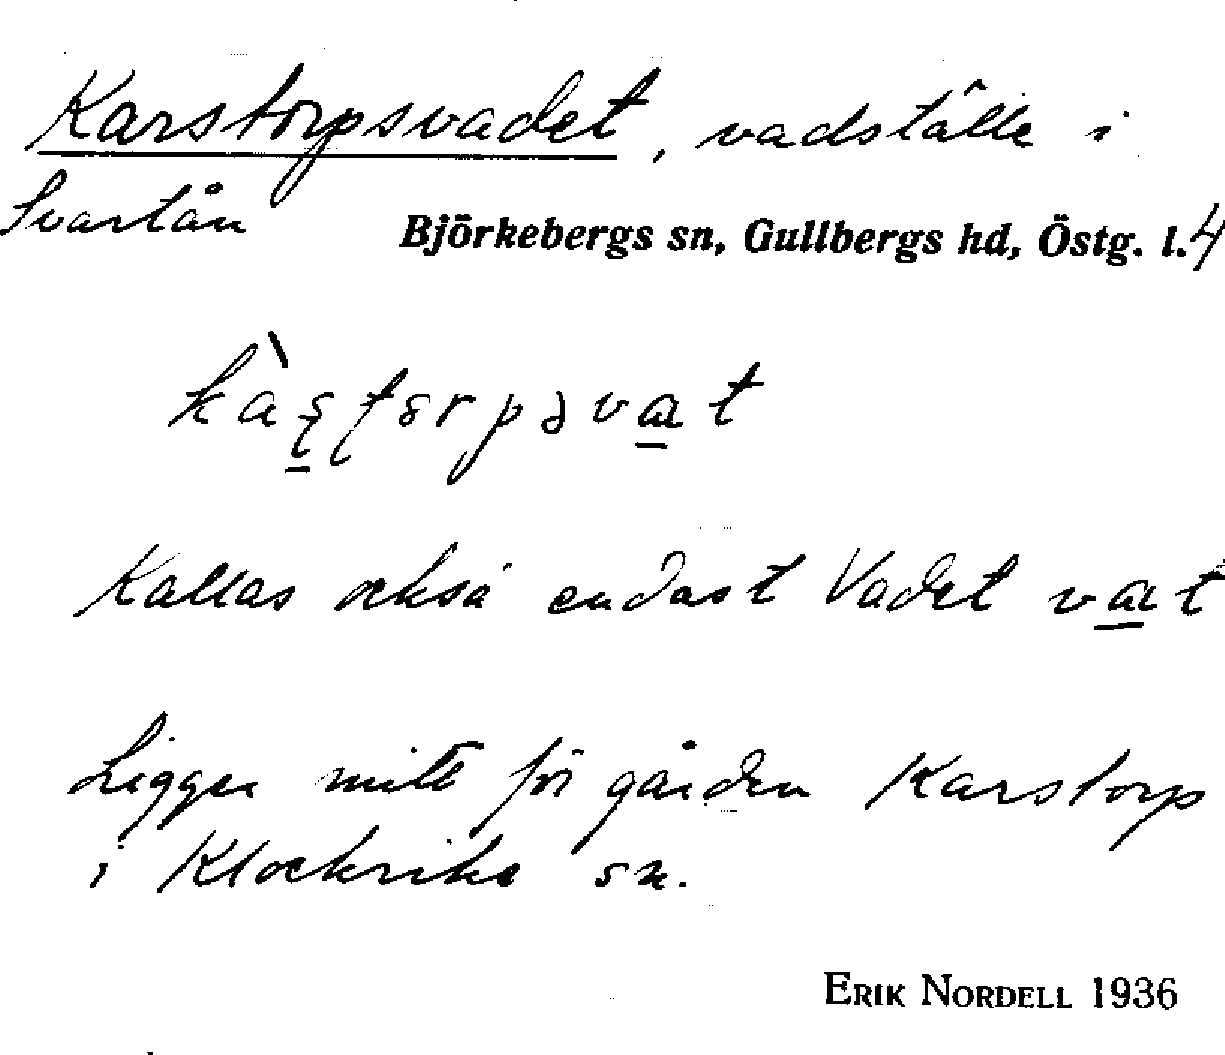 Karstorpsvadet, vadställe i
Svartån
Björkebergs sn, Gullbergs hd, Östg. l. 4
Kallas också endast Vadet
Ligger mitt för gården Karstorp
i Klockrike sn.
ERIK NORDELL 1936